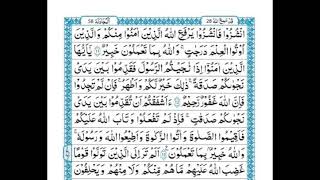 قد سمع الله ٢٨
المجادلة ٥٨
انْشُزُوْا فَانْشُزُوْا يَرْفَعِ اللّٰهُ الَّذِيْنَ اٰمَنُوْا مِنْكُمْ وَالَّذِيْنَ
اُوْتُوا الْعِلْمَ دَرَجٰتٍ وَاللّٰهُ بِمَا تَعْمَلُوْنَ خَبِيْرٌ يٰٓاَيُّهَا
الَّذِيْنَ اٰمَنُوْٓا اِذَا نَاجَيْتُمُ الرَّسُوْلَ فَقَدِّمُوْا بَيْنَ يَدَيْ
نَجْوٰىكُمْ صَدَقَةً ذٰلِكَ خَيْرٌ لَّكُمْ وَاَطْهَرُ فَاِنْ لَّمْ تَجِدُوْا
فَاِنَّ اللّٰهَ غَفُوْرٌ رَّحِيْمٌ ءَاَشْفَقْتُمْ اَنْ تُقَدِّمُوْا بَيْنَ يَدَيْ
نَجْوٰىكُمْ صَدَقٰتٍ فَاِذْ لَمْ تَفْعَلُوْا وَتَابَ اللّٰهُ عَلَيْكُمْ
فَاَقِيْمُوا الصَّلٰوةَ وَاٰتُوا الزَّكٰوةَ وَاَطِيْعُوا اللّٰهَ وَرَسُوْلَهٗ
وَاللّٰهُ خَبِيْرٌۢ بِمَا تَعْمَلُوْنَ اَلَمْ تَرَ اِلَى الَّذِيْنَ تَوَلَّوْا قَوْمًا
غَضِبَ اللّٰهُ عَلَيْهِمْ مَا هُمْ مِّنْكُمْ وَلَا مِنْهُمْ وَيَحْلِفُوْنَ